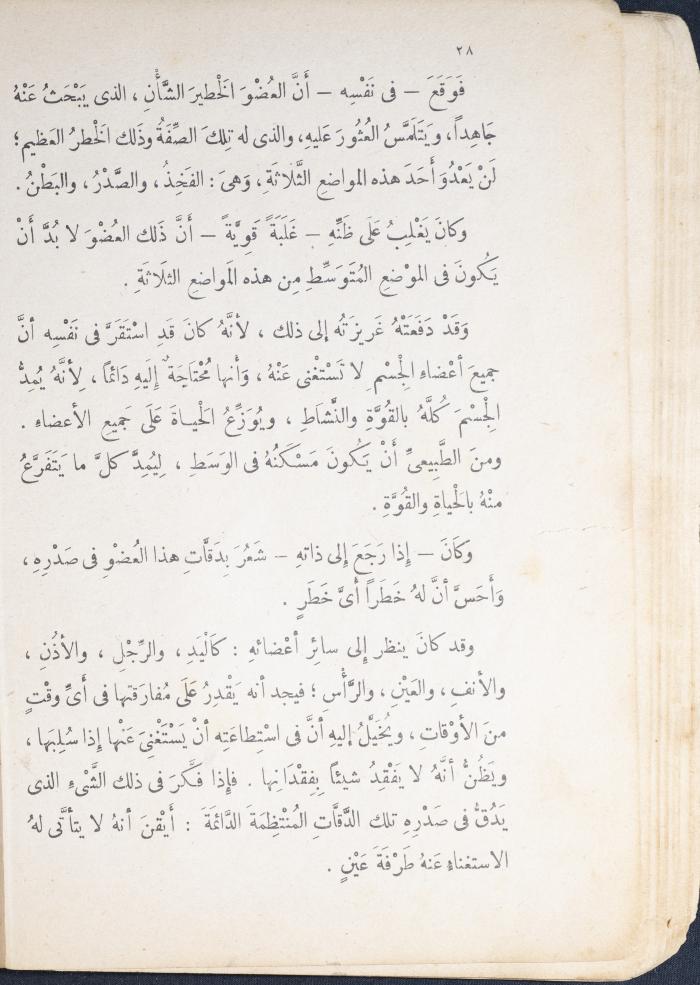 ٢٨
فَوَقَعَ — فى نَفْسِه — أَنَّ العُضْوَ الْخطيرَ الشَّأْنِ ، الذى يَبْحَثُ عَنْهُ
جَاهِداً ، وَيَتَلَمَّسُ العُثُورَ عَليهِ، والذى له تِلكَ الصِّفَةُ وذَلك الْخطرُ العَظيم ؛
لَنْ يَعْدُوَ أَحَدَ هذه المواضعِ الثَّلَاثَةِ ، وَهىَ : الفَخِذُ ، والصَّدْرُ ، والبَطْنُ .
وكانَ يَغْلِبُ عَلَى ظَنِّهِ — غَلَبَةً قَوِيَّةً — أَنَّ ذَلك العُضْوَ لا بُدَّ أَنْ
يَكُونَ فى الموْضعِ المُتَوَسِّطِ مِن هذه المَواضعِ الثلَاثَةِ .
وَقَدْ دَفَعَتْهُ غَريزَتُه إلى ذلك ، لأنَّهُ كانَ قَدِ اسْتَقَرَّ فى نَفْسِه أنَّ
جميعَ أعْضاءِ الْجِسْمِ لا تَسْتَغْنى عَنْهُ ، وَأنها مُحْتَاجَةٌ إِلَيهِ دَائماً ، لِأنَّهُ يُمِدُّ
الْجِسْمَ كُلَّهُ بالقُوَّةِ والنَّشاطِ ، ويُوَزِّعُ الْحياةَ عَلَى جَمِيعِ الأعضاءِ .
ومنَ الطَّبِيعىِّ أَنْ يَكُونَ مَسْكَنُهُ فى الوَسَطِ ، لِيُمِدَّ كلَّ ما يَتَفَرَّعُ
منْهُ بالْحَياةِ والقُوَّةِ .
وكَانَ — إذا رَجَعَ إلى ذاتهِ — شَعُرَ بِدَقَّاتِ هذا العُضْوِ فى صَدْرِهِ ،
وَأَحَسَّ أنَّ لهُ خَطَراً أىَّ خَطَرٍ .
وقد كانَ ينظر إلى سائِرِ أعْضائهِ : كَالْيَدِ ، والرِّجْلِ ، والأذُنِ ،
والأنفِ ، والعَيْنِ ، والرَّأْسِ ؛ فيجد أنه يَقْدِرُ عَلَى مُفارَقتها فى أَىِّ وقْتٍ
منَ الأوْقاتِ ، ويُخَيَّلُ إليهِ أنَّ فى اسْتِطاعَتِه أنْ يَسْتَغْنِىَ عَنْها إذا سُلِبَها ،
ويَظُنُّ أنَّهُ لا يَفْقِدُ شيئاً بِفِقْدَانِها . فإذا فَكَّرَ فى ذلك الشَّىْءِ الذى
يَدُقُّ فى صَدْرِهِ تلك الدَّقَّاتِ المُنْتَظِمَةَ الدَّائمَةَ : أَيْقنَ أنهُ لا يتأتَّى لهُ
الاستغناءِ عَنهُ طَرْفَةَ عَيْنٍ .